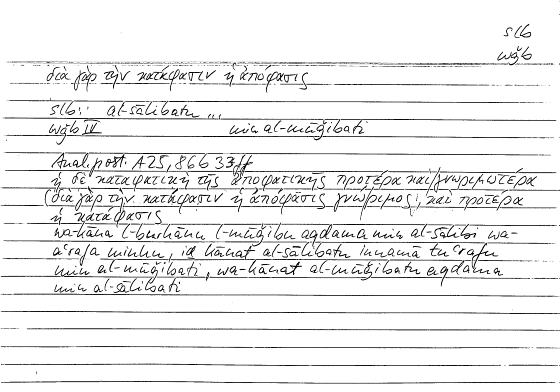 slb
wǧb
διὰ γὰρ τὴν κατάφασιν ἡ ἀπόφασις
slb: al-sālibatu ...
wǧb IV min al-mūǧibati
Anal. post. A25, 86b 33 ff
ἡ δὲ καταφατικὴ τῆς ἀποφατικῆς προτέρα καὶ γνωριμωτέρα
(διὰ γὰρ τὴν κατάφασιν ἡ ἀπόφασις γνώριμος, καὶ προτέρα
ἡ κατάφασις
wa-kāna l-burhānu l-mūǧibu aqdama min al-sālibi wa-
aʿrafa minhu, iḏ kānat al-sālibatu innamā tuʿrafu
min al-mūǧibati, wa-kānat al-mūǧibatu aqdama
min al-sālibati